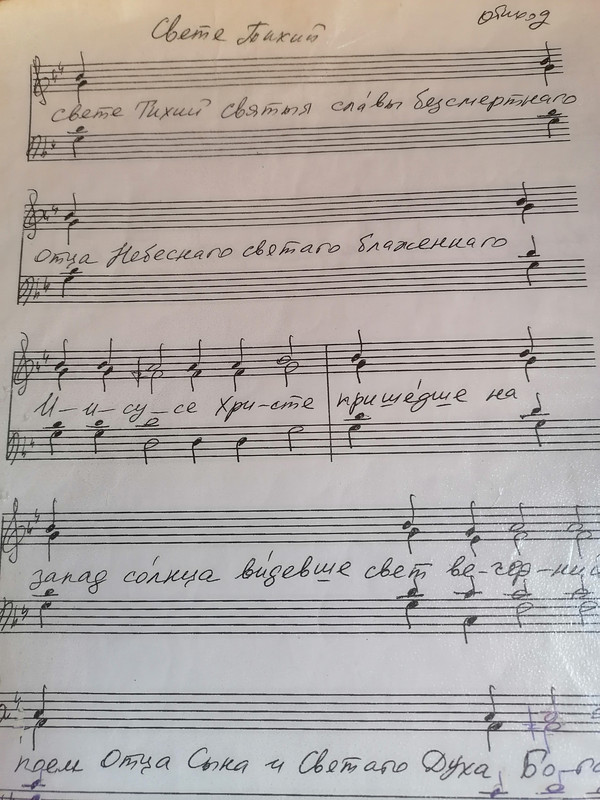 обиход
Свете Тихий
свете Тихий святыя сла́вы безсмертнаго
отца Небеснаго святаго блаженнаго
И-и-су-се Хри-сте прише́дше на
запад со́лнца ви́девше свет ве-чер-ний
поем Отца Сына и Светаго Духа Бо-га